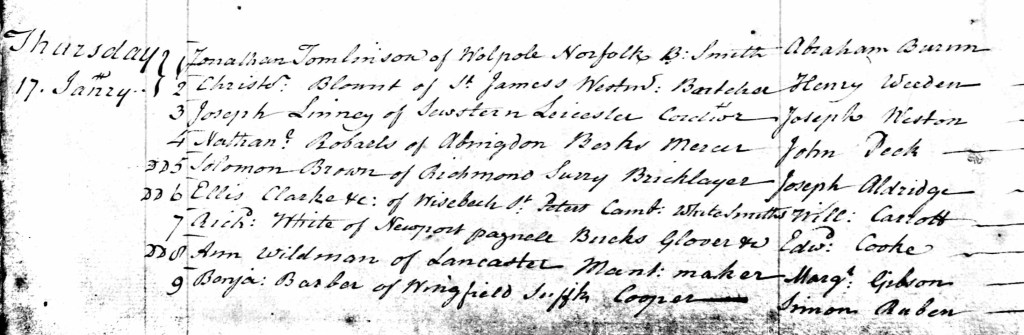 Thursday 1 Jonathan Tomlinson of Walpole Norfolk B: Smith Abraham Burun
17. Janry. 2 Christor: Blount of St Jamess Westmr: Butcher Henry Weeden
3 Joseph Linney of Sewstern Leicester Cordwr Joseph Weston
4 Nathanl: Robaels of Abingdon Berks Mercer John Peck
DD 5 Solomon Brown of Richmond Surry Bricklayer Joseph Aldridge
DD 6 Ellis Clarke &c: of Wisebech St. Peters Camb: White Smiths Will: Carrott
7 Richd: White of Newport pagnell Bucks Glover &c Edwd: Cooke
DD 8 Ann Wildman of Lancaster Mant: maker Margt: Gibson
9 Benja: Barber of Wingfield Suffk Cooper Simon Ruben